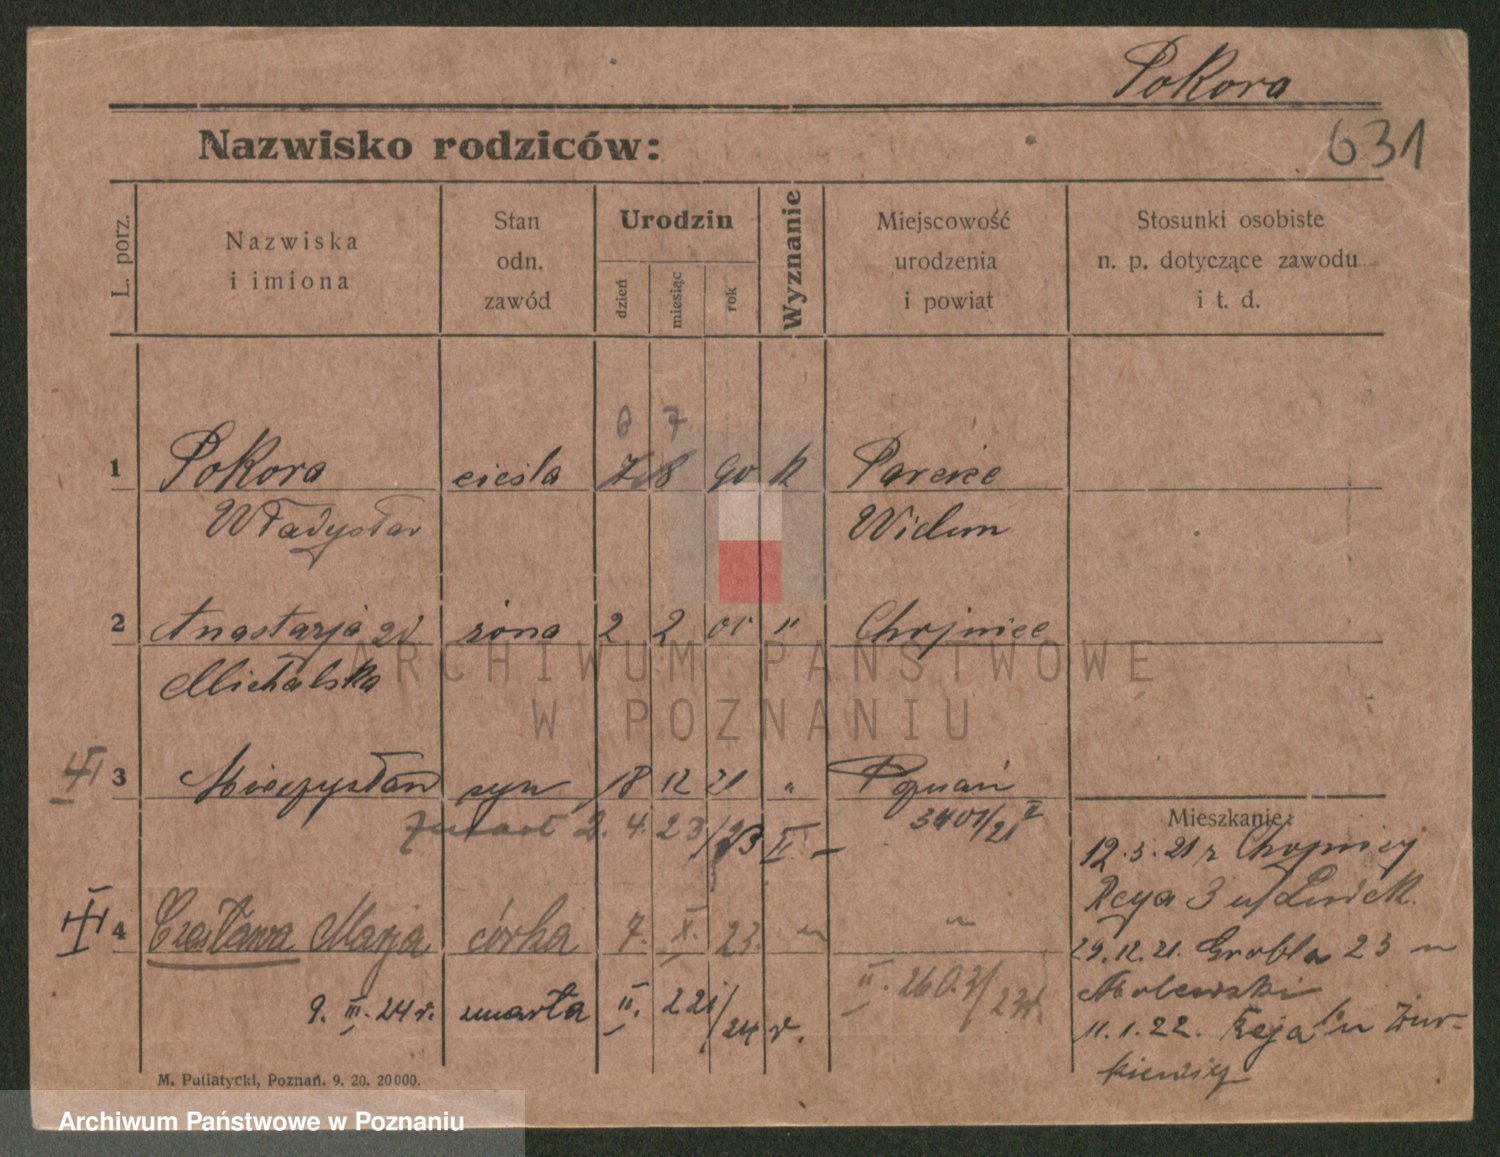 Pokora
631
Nazwisko rodziców:
L. porz.
Nazwiska
i imiona
Stan
odn.
zawód
Urodzin
dzień
miesiąc
rok
Wyznanie
Miejscowość
urodzenia
i powiat
Stosunki osobiste
n. p. dotyczące zawodu
i t. d.
7
1 Pokora cieśla 8 90 k
Władysław Wielun
2 Anastazja zd żona 2 2 01 " Chojnice
Michalska
3 Mieczysław syn 18 12 21 " Poznań
zmarł 2. 4. 23/ II 3401/21 II
III 4 Czesława Marja córka 7. X. 23. " "
II. 2603/23r.
9. III. 24 r. umarła II. 221/24 r.
Mieszkanie:
12.5.21 z Chojnicy
Reya 3 u/
29.12.21. Grobla 23 u
11.1.22. Reja 1 u Żur-
kiewicz
M. Putiatycki, Poznań. 9. 20. 20000.
ARCHIWUM PAŃSTWOWE
W POZNANIU
Archiwum Państwowe w Poznaniu